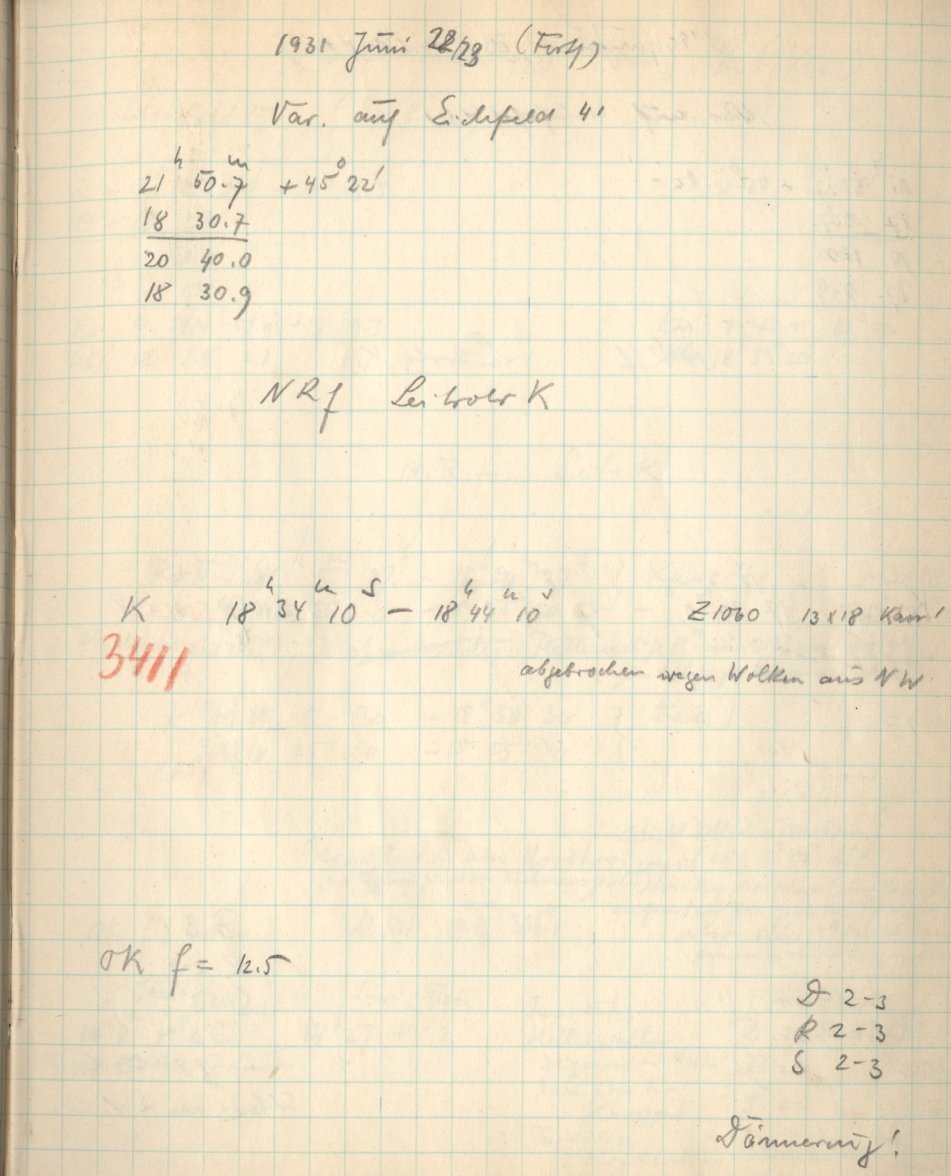 1931 Juni 22/23
Var. auf Eichfeld 41
21ʰ 50.7ᵐ +45° 22'
18 30.7
20 40.0
18 30.9
NRf Leitrohr K
K 18ʰ 34ᵐ 10ˢ — 18ʰ 44ᵐ 10ˢ Z1060 13x18 Kam!
3411
abgebrochen wegen Wolken aus NW
OK f = 12.5
D 2-3
R 2-3
S 2-3
Dämmerung!